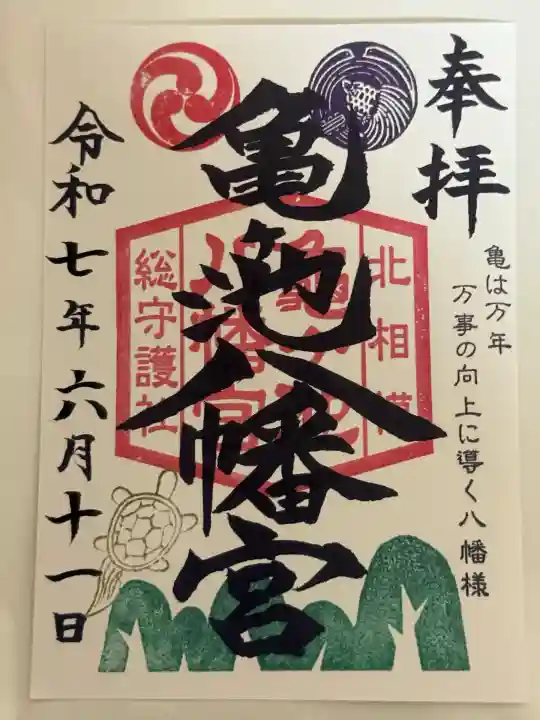 奉拝
亀は万年
万事の向上に導く八幡様
亀池八幡宮
北相模
総守護社
令和七年六月十一日